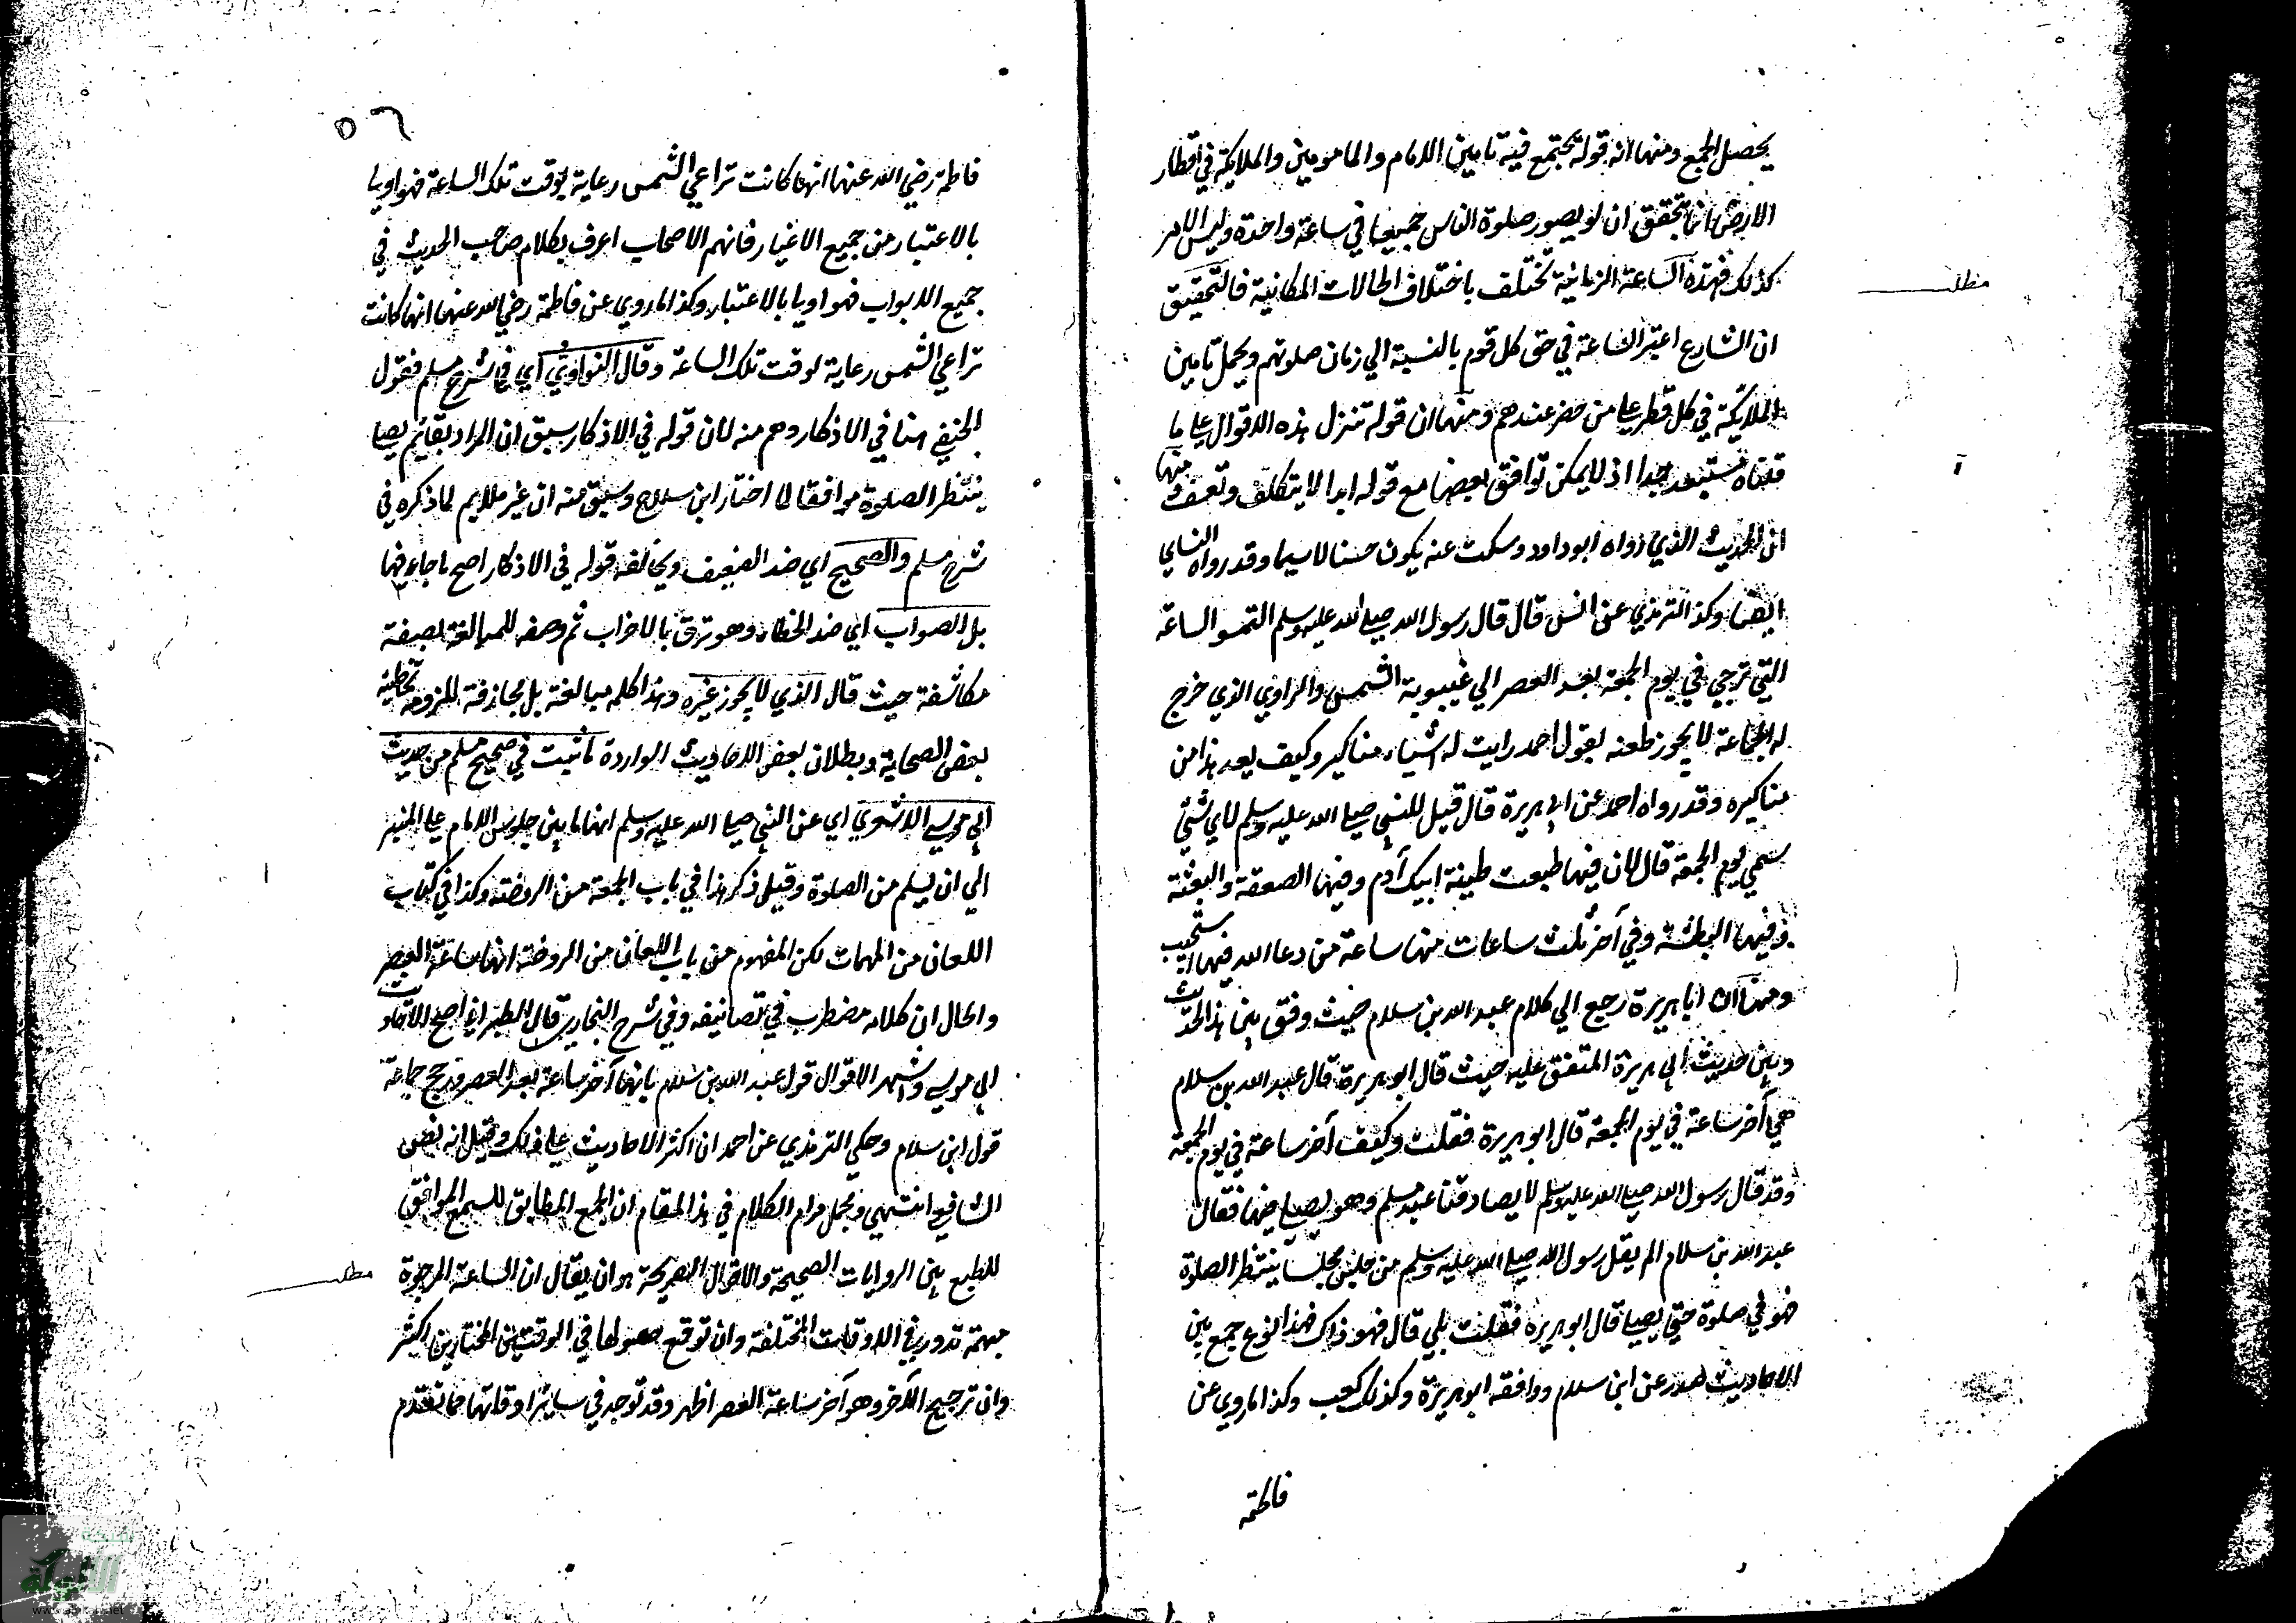 يحصل الجمع ومنها انه قوله تجتمع فيه تامين الامام والمامومين والملايكة في اقطار
الارض انما تحقق ان لو يصور صلوة الناس جميعا في ساعة واحدة وليس الامر
كذلك فهذه الساعة الزمانية تختلف باختلاف الحالات المكانية فالتحقيق
مطلب
ان الشارع اعتبر الساعة في حق كل قوم بالنسبة الي زمان صلوتهم ويحمل تامين
الملايكة في كل قطر علي من حضر عندهم ومنها ان قوله تنزل هذه الاقوال علي ما
قلناه مستبعد جدا اذ لا يمكن توافق بعضها مع قوله ابدا الا بتكلف وتعسف ومنها
ان الحديث الذي رواه ابو داود وسكت عنه يكون حسنا لا سيما وقد رواه النساي
ايضا وكذا الترمذي عن انس قال قال رسول الله صلي الله عليه وسلم التمسو الساعة
التي ترجي في يوم الجمعة بعد العصر الي غيبوبة الشمس والراوي الذي خرج
له الجماعة لا يجوز طعنه بقول احمد رايت له اشياء مناكير وكيف يعد هذا من
مناكيره وقد رواه احمد عن ابي هريرة قال قيل للنبي صلي الله عليه وسلم لاي شئ
سمي يوم الجمعة قال لان فيها طبعت طينة ابيك آدم وفيها الصعقة والبعثة
وفيها البطشة وفي آخر ثلث ساعات منها ساعة من دعا الله فيها استجيب
ومنها ان ابا هريرة رجع الي كلام عبد الله بن سلام حيث وفق بين هذا الحديث
وبين حديث ابي هريرة المتفق عليه حيث قال ابو هريرة قال عبد الله بن سلام
هي آخر ساعة في يوم الجمعة قال ابو هريرة فقلت وكيف آخر ساعة في يوم الجمعة
وقد قال رسول الله صلي الله عليه وسلم لا يصادفها عبد مسلم وهو يصلي فيها فقال
عبد الله بن سلام الم يقل رسول الله صلي الله عليه وسلم من جلس مجلسا ينتظر الصلوة
فهو في صلوة حتي يصلي قال ابو هريرة فقلت بلي قال فهو ذاك فهذا نوع جمع بين
الاحاديث صدر عن ابن سلام ووافقه ابو هريرة وكذلك كعب وكذا المروي عن
فاطمة
٥٦
فاطمة رضي الله عنها انها كانت تراعي الشمس رعاية لوقت تلك الساعة فهو اولي
بالاعتبار من جميع الاغيار فانهم الاصحاب اعرف بكلام صاحب الحديث في
جميع الابواب فهو اولي بالاعتبار وكذا المروي عن فاطمة رضي الله عنها انها كانت
تراعي الشمس رعاية لوقت تلك الساعة وقال النواوي اي في شرح مسلم فقول
الحنفي هنا في الاذكار وهم منه لان قوله في الاذكار سبق ان المراد بقائم يصلي
ينتظر الصلوة موافقا لما اختار ابن سلام وسبق منه ان غير ملايم لما ذكره في
شرح مسلم والصحيح اي ضد الضعيف ويخالفه قوله في الاذكار اصح ما جاء فيها
بل الصواب اي ضد الخطاء وهو ترق بالاضراب ثم وصفه للمبالغة بصفة
مكاشفة حيث قال الذي لا يجوز غيره وهذا كله مبالغة بل مجازفة للزومه تخطئة
بعض الصحابة وبطلان بعض الاحاديث الواردة ما ثبت في صحيح مسلم من حديث
ابي موسي الاشعري اي عن النبي صلي الله عليه وسلم انها ما بين جلوس الامام علي المنبر
الي ان يسلم من الصلوة وقيل ذكر هذا في باب الجمعة من الروضة وكذا في كتاب
اللعان من المهمات لكن المفهوم من باب اللعان من الروضة انها ساعة العصر
والحال ان كلامه مضطرب في تصانيفه وفي شرح البخاري قال الطبراني اصح الاحاديث
ابي موسي واشهر الاقوال قول عبد الله بن سلام بانها آخر ساعة بعد العصر ورجح جماعة
قول ابن سلام وحكي الترمذي عن احمد ان اكثر الاحاديث علي ذلك وقيل انه نص
الشافعي انتهي ومجمل مرام الكلام في هذا المقام ان الجمع المطابق للسمع الموافق
للطبع بين الروايات الصحيحة والاقوال الصريحة هو ان يقال ان الساعة المرجوة
مطلب
مبهمة تدور في الاوقات المختلفة وان توقع حصولها في الوقتين المختارين اكثر
وان ترجيح الآخر وهو آخر ساعة العصر اظهر وقد توجد في سائر اوقاتها مما تقدم